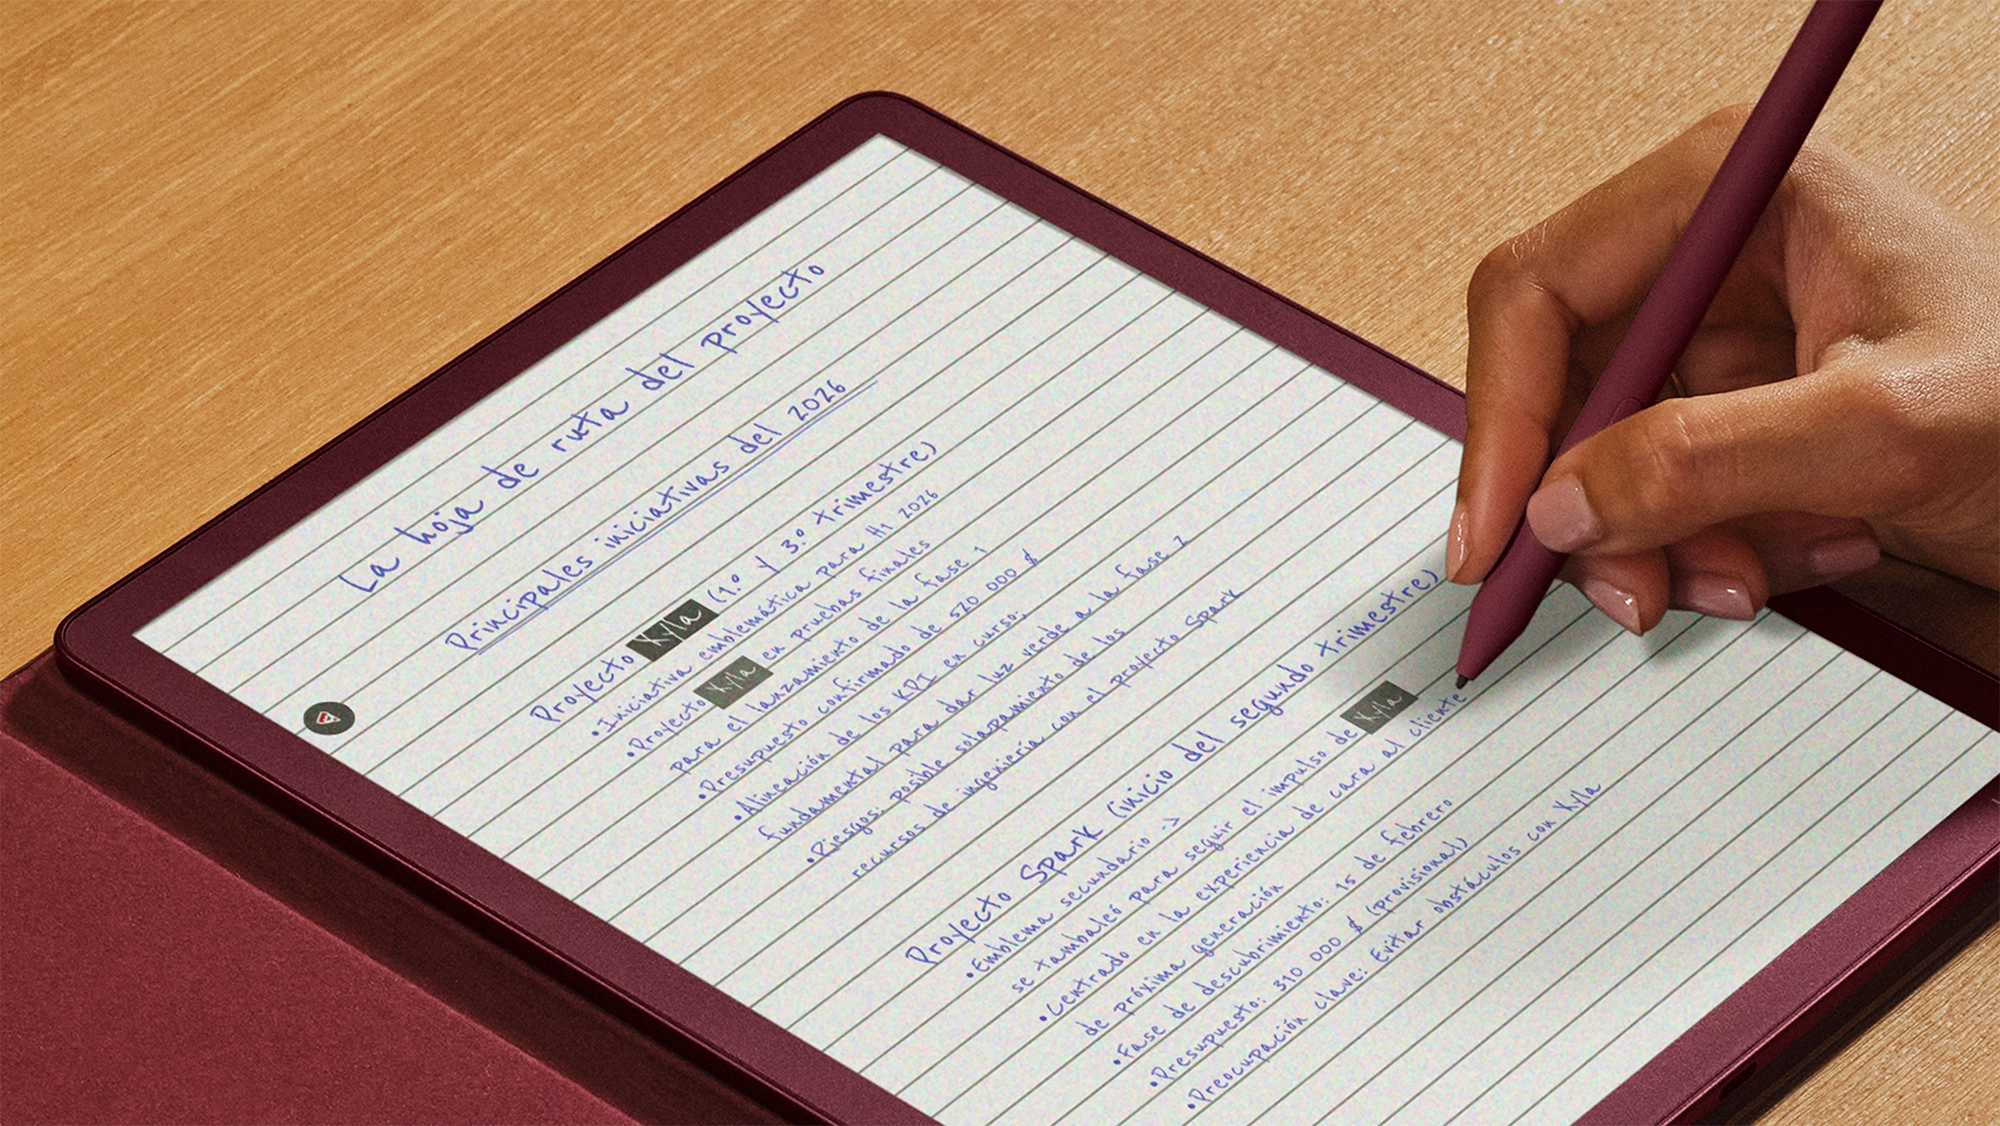 La hoja de ruta del proyecto
Principales iniciativas del 2026
Proyecto Xyla (1.º y 3.º trimestre)
•Iniciativa emblemática para H1 2026
•Proyecto Xyla en pruebas finales
para el lanzamiento de la fase 1
•Presupuesto confirmado de 520 000 $
•Alineación de los KPI en curso:
fundamental para dar luz verde a la fase 2
•Riesgos: posible solapamiento de los
recursos de ingeniería con el proyecto Spark
Proyecto Spark (inicio del segundo trimestre)
•Emblema secundario ->
se tambaleó para seguir el impulso de Xyla
•Centrado en la experiencia de cara al cliente
de próxima generación
•Fase de descubrimiento: 15 de febrero
•Presupuesto: 310 000 $ (provisional)
•Preocupación clave: Evitar obstáculos con Xyla